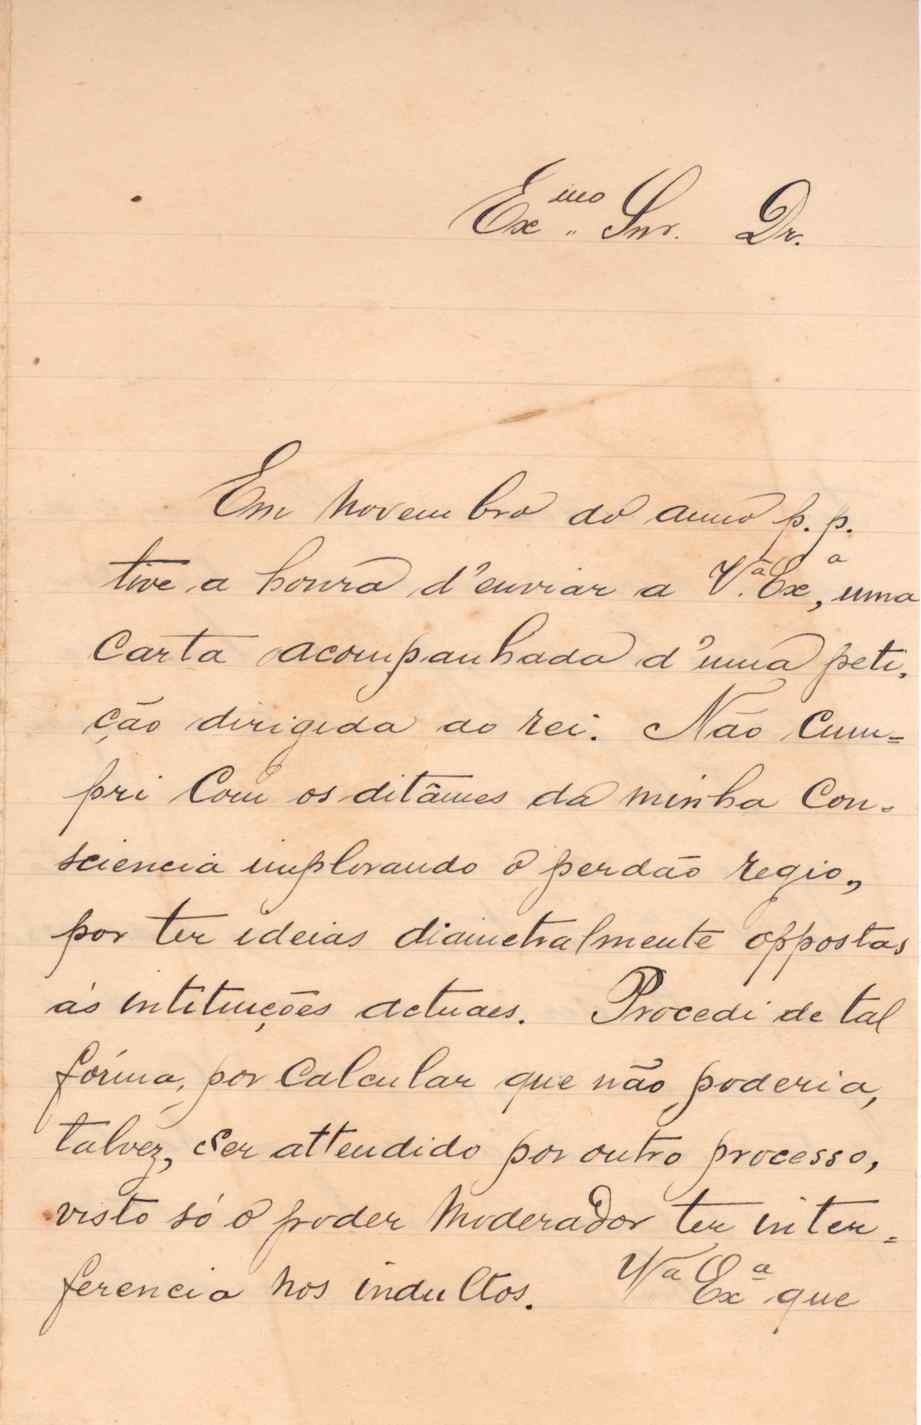 Ex.mo Snr. Dr.
Em Novembro do anno p. p.
tive a honra d'enviar a V.ª Exª, uma
carta acompanhada d'uma peti-
ção dirigida ao rei. Não cum=
pri com os ditâmes da minha con-
sciencia implorando o perdão regio,
por ter ideias diametralmente oppostas
ás intituições actuaes. Procedi de tal
fórma, por calcular que não poderia,
talvez, ser attendido por outro processo,
visto só o poder Moderador ter inter=
ferencia nos indultos. Vª Exª que